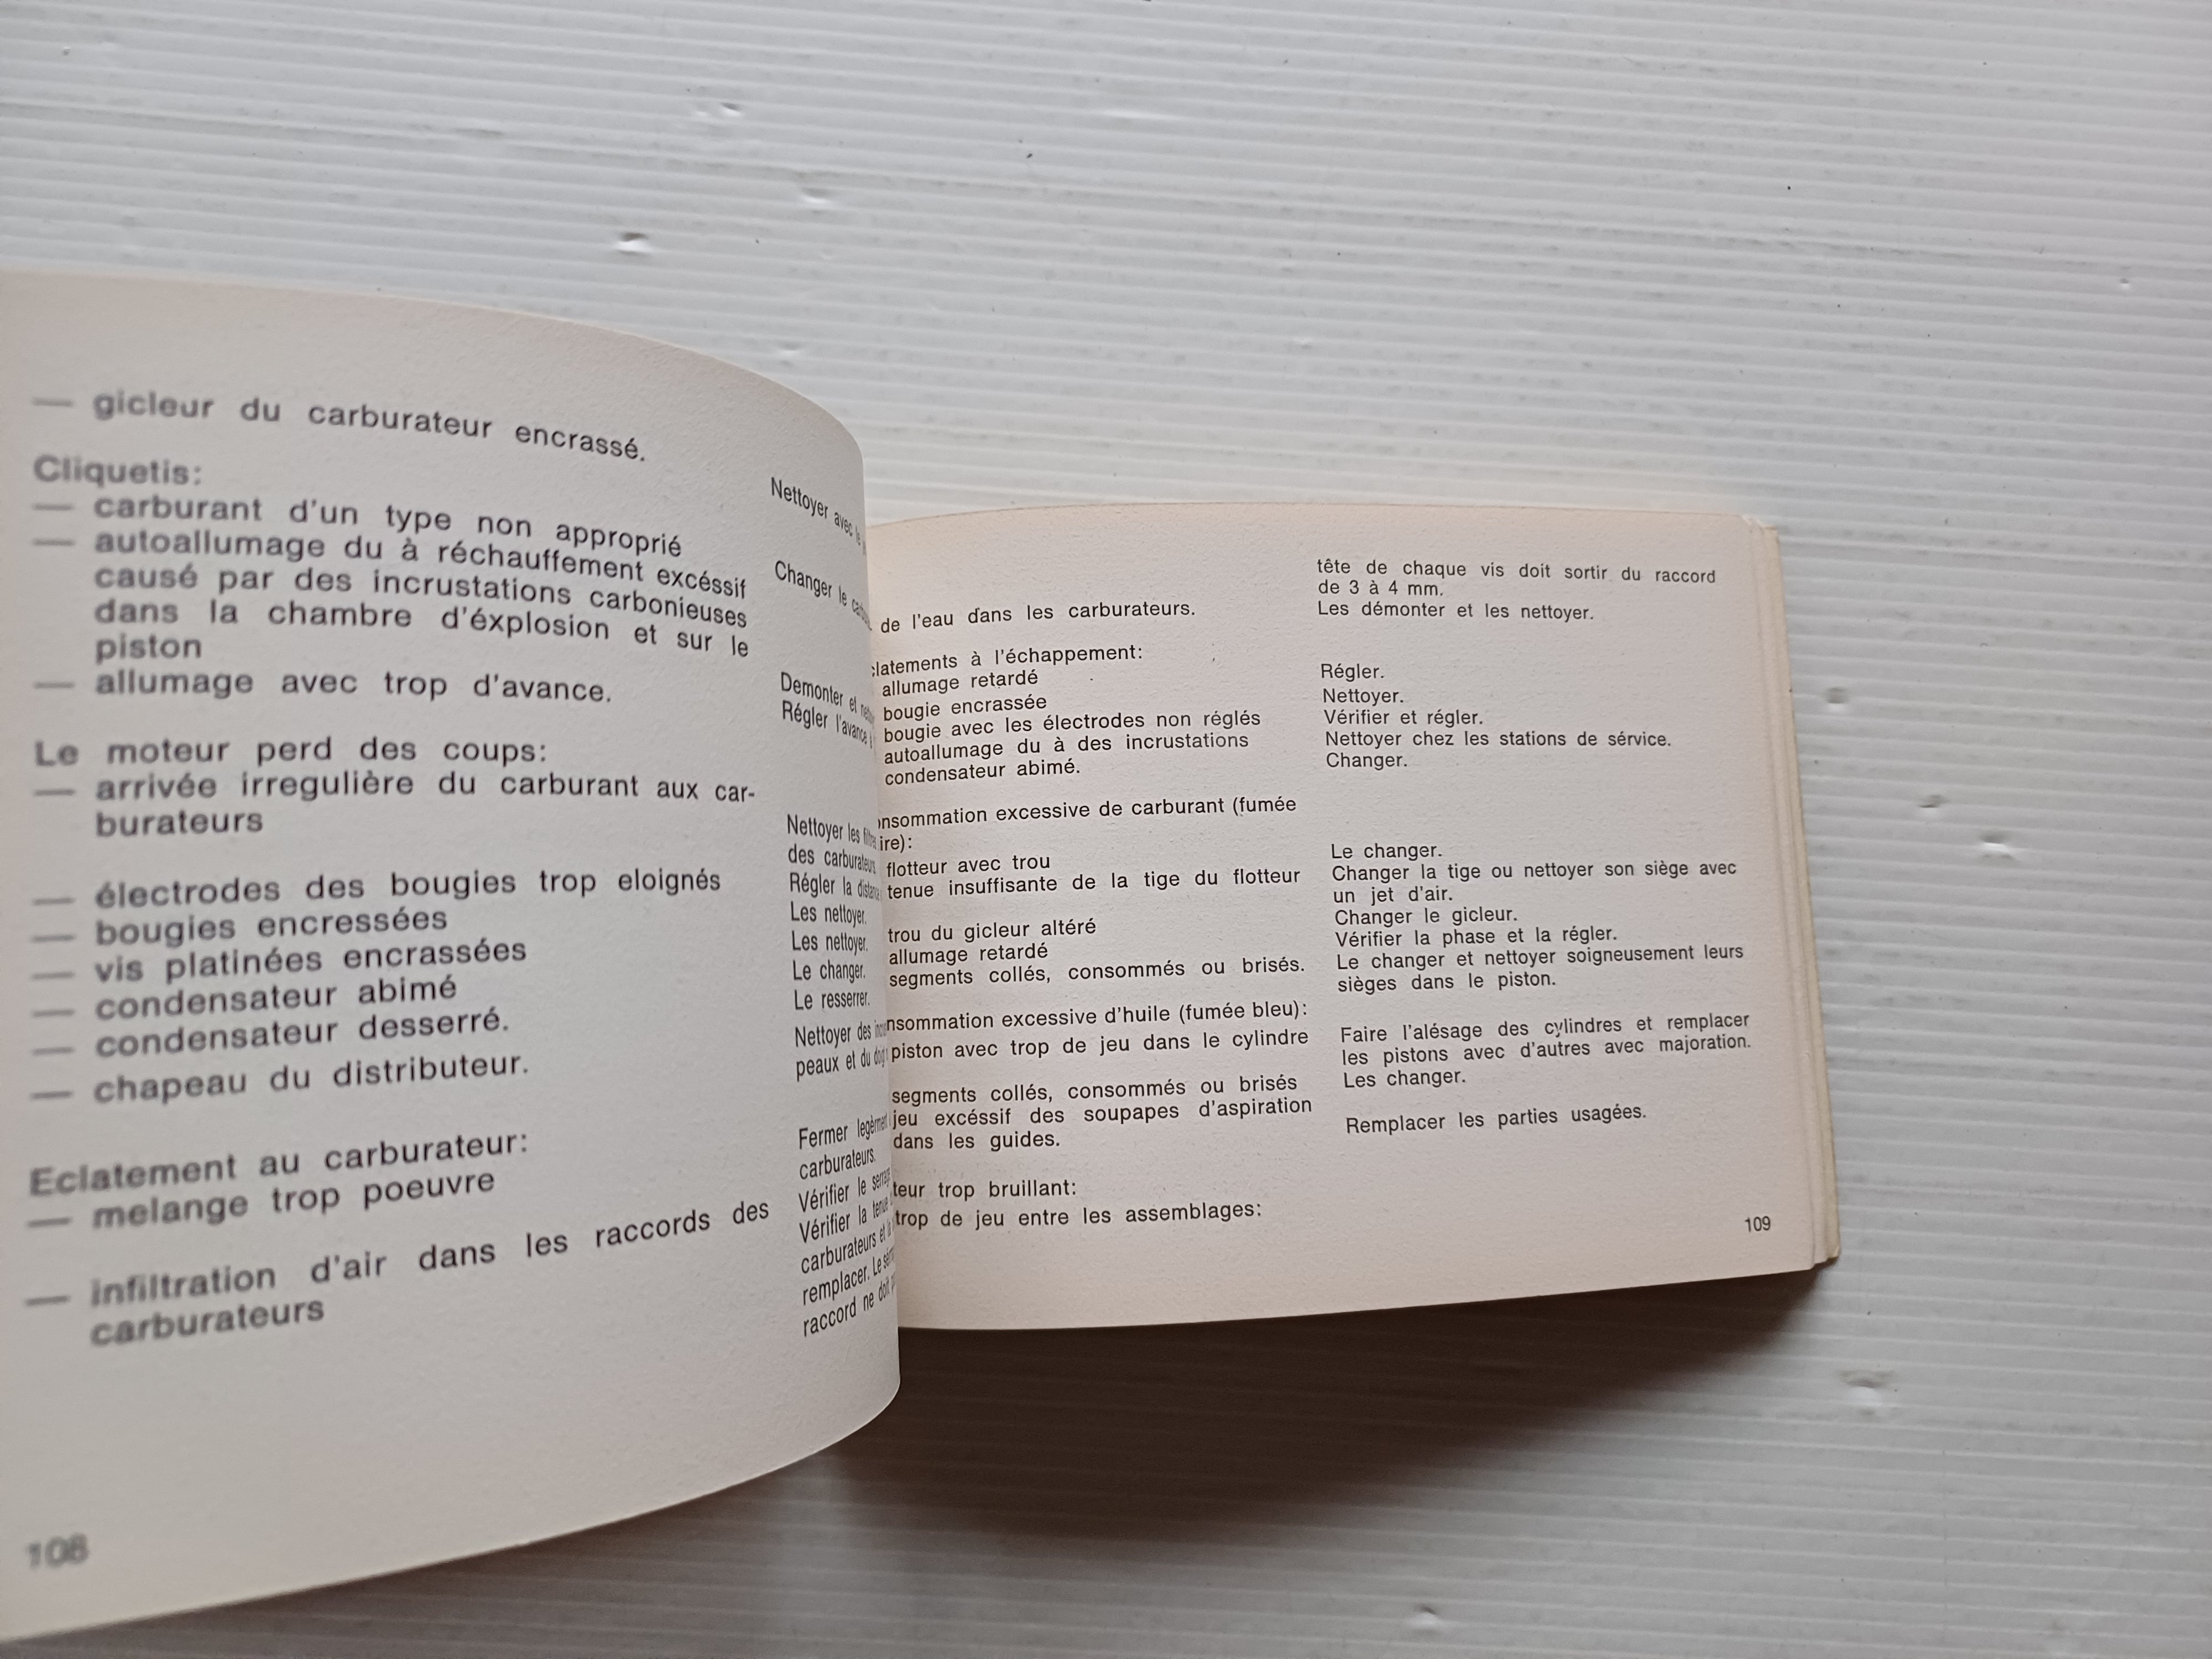 — gicleur du carburateur encrassé.
Cliquetis:
— carburant d'un type non approprié
— autoallumage du à réchauffement excéssif
causé par des incrustations carbonieuses
dans la chambre d'éxplosion et sur le
piston
— allumage avec trop d'avance.
Le moteur perd des coups:
— arrivée irregulière du carburant aux car-
burateurs
— électrodes des bougies trop eloignés
— bougies encressées
— vis platinées encrassées
— condensateur abimé
— condensateur desserré.
— chapeau du distributeur.
Eclatement au carburateur:
— melange trop poeuvre
— infiltration d'air dans les raccords des
carburateurs
108
Nettoyer avec le
Changer le
Demonter et
Régler l'avance
Nettoyer les
des carburateurs
Régler la
Les nettoyer.
Les nettoyer.
Le changer.
Le resserrer.
Nettoyer des
peaux et du
Fermer
carburateurs.
Vérifier le
Vérifier la tenue
carburateurs et
remplacer. Le
raccord ne doit
de l'eau dans les carburateurs.
clatements à l'échappement:
allumage retardé
bougie encrassée
bougie avec les électrodes non réglés
autoallumage du à des incrustations
condensateur abimé.
onsommation excessive de carburant (fumée
ire):
flotteur avec trou
tenue insuffisante de la tige du flotteur
trou du gicleur altéré
allumage retardé
segments collés, consommés ou brisés.
nsommation excessive d'huile (fumée bleu):
piston avec trop de jeu dans le cylindre
segments collés, consommés ou brisés
jeu excéssif des soupapes d'aspiration
dans les guides.
teur trop bruillant:
trop de jeu entre les assemblages:
tête de chaque vis doit sortir du raccord
de 3 à 4 mm.
Les démonter et les nettoyer.
Régler.
Nettoyer.
Vérifier et régler.
Nettoyer chez les stations de sérvice.
Changer.
Le changer.
Changer la tige ou nettoyer son siège avec
un jet d'air.
Changer le gicleur.
Vérifier la phase et la régler.
Le changer et nettoyer soigneusement leurs
sièges dans le piston.
Faire l'alésage des cylindres et remplacer
les pistons avec d'autres avec majoration.
Les changer.
Remplacer les parties usagées.
109